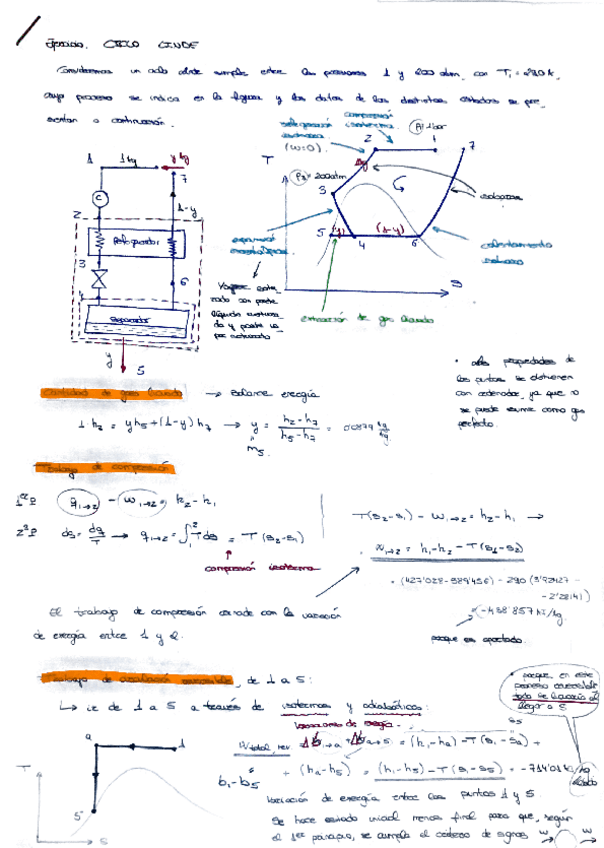 Ejercicio. CICLO LINDE
Consideremos un ciclo Linde simple entre las presiones 1 y 200 atm, con T₁ = 290 K,
cuyo proceso se indica en la figura y los datos de los distintos estados se pre-
sentan a continuación.
compresión
isoterma
refrigeración
isobara
(w=0)
P₁ = 1 bar
1
1 kg
y kg
7
C
2
1-y
Refrigerador
3
6
4
Separador
y
5
T
P₂ = 200 atm
2
1
7
3
5
(y)
4
(1-y)
6
S
isobaras
expansión
isoentálpica
calentamiento
isobaro
Vapor satu-
rado con parte
líquido satura-
da y parte va-
por saturado
extracción de gas licuado
• Las propiedades de
los puntos se obtienen
con ordenador, ya que no
se puede asumir como gas
perfecto.
Cantidad de gas licuado → Balance energía
1·h₂ = y h₅ + (1-y) h₇ → y = (h₂-h₇)/(h₅-h₇) = 0'0879 kg/kg
m₅
Trabajo de compresión
1er P q₁→₂ - w₁→₂ = h₂ - h₁
2º P ds = dq/T → q₁→₂ = ∫₁² T ds = T (s₂-s₁)
compresión isoterma
T(s₂-s₁) - w₁→₂ = h₂-h₁ →
w₁→₂ = h₁-h₂ - T(s₁-s₂)
= (427'028-389'456) - 290 (3'92427 -
- 2'28141)
= -438'857 kJ/kg
porque es aportado.
El trabajo de compresión coincide con la variación
de exergía entre 1 y 2.
Trabajo de licuación reversible, de 1 a 5:
↳ ir de 1 a 5 a través de isotermas y adiabáticas:
• porque en este
proceso reversible
todo se licuaría al
llegar a 5
Variaciones de exergía.
T
a
1
5
S
w total, rev = (h₁-ha) - T(s₁-sa) +
b₁-b₅
s₅
+ (ha-h₅) = (h₁-h₅) - T(s₁-s₅) = -714'01 kJ/kg
Variación de exergía entre los puntos 1 y 5.
Se hace estado inicial menos final para que, según
el 1er principio, se cumpla el criterio de signos
w
w